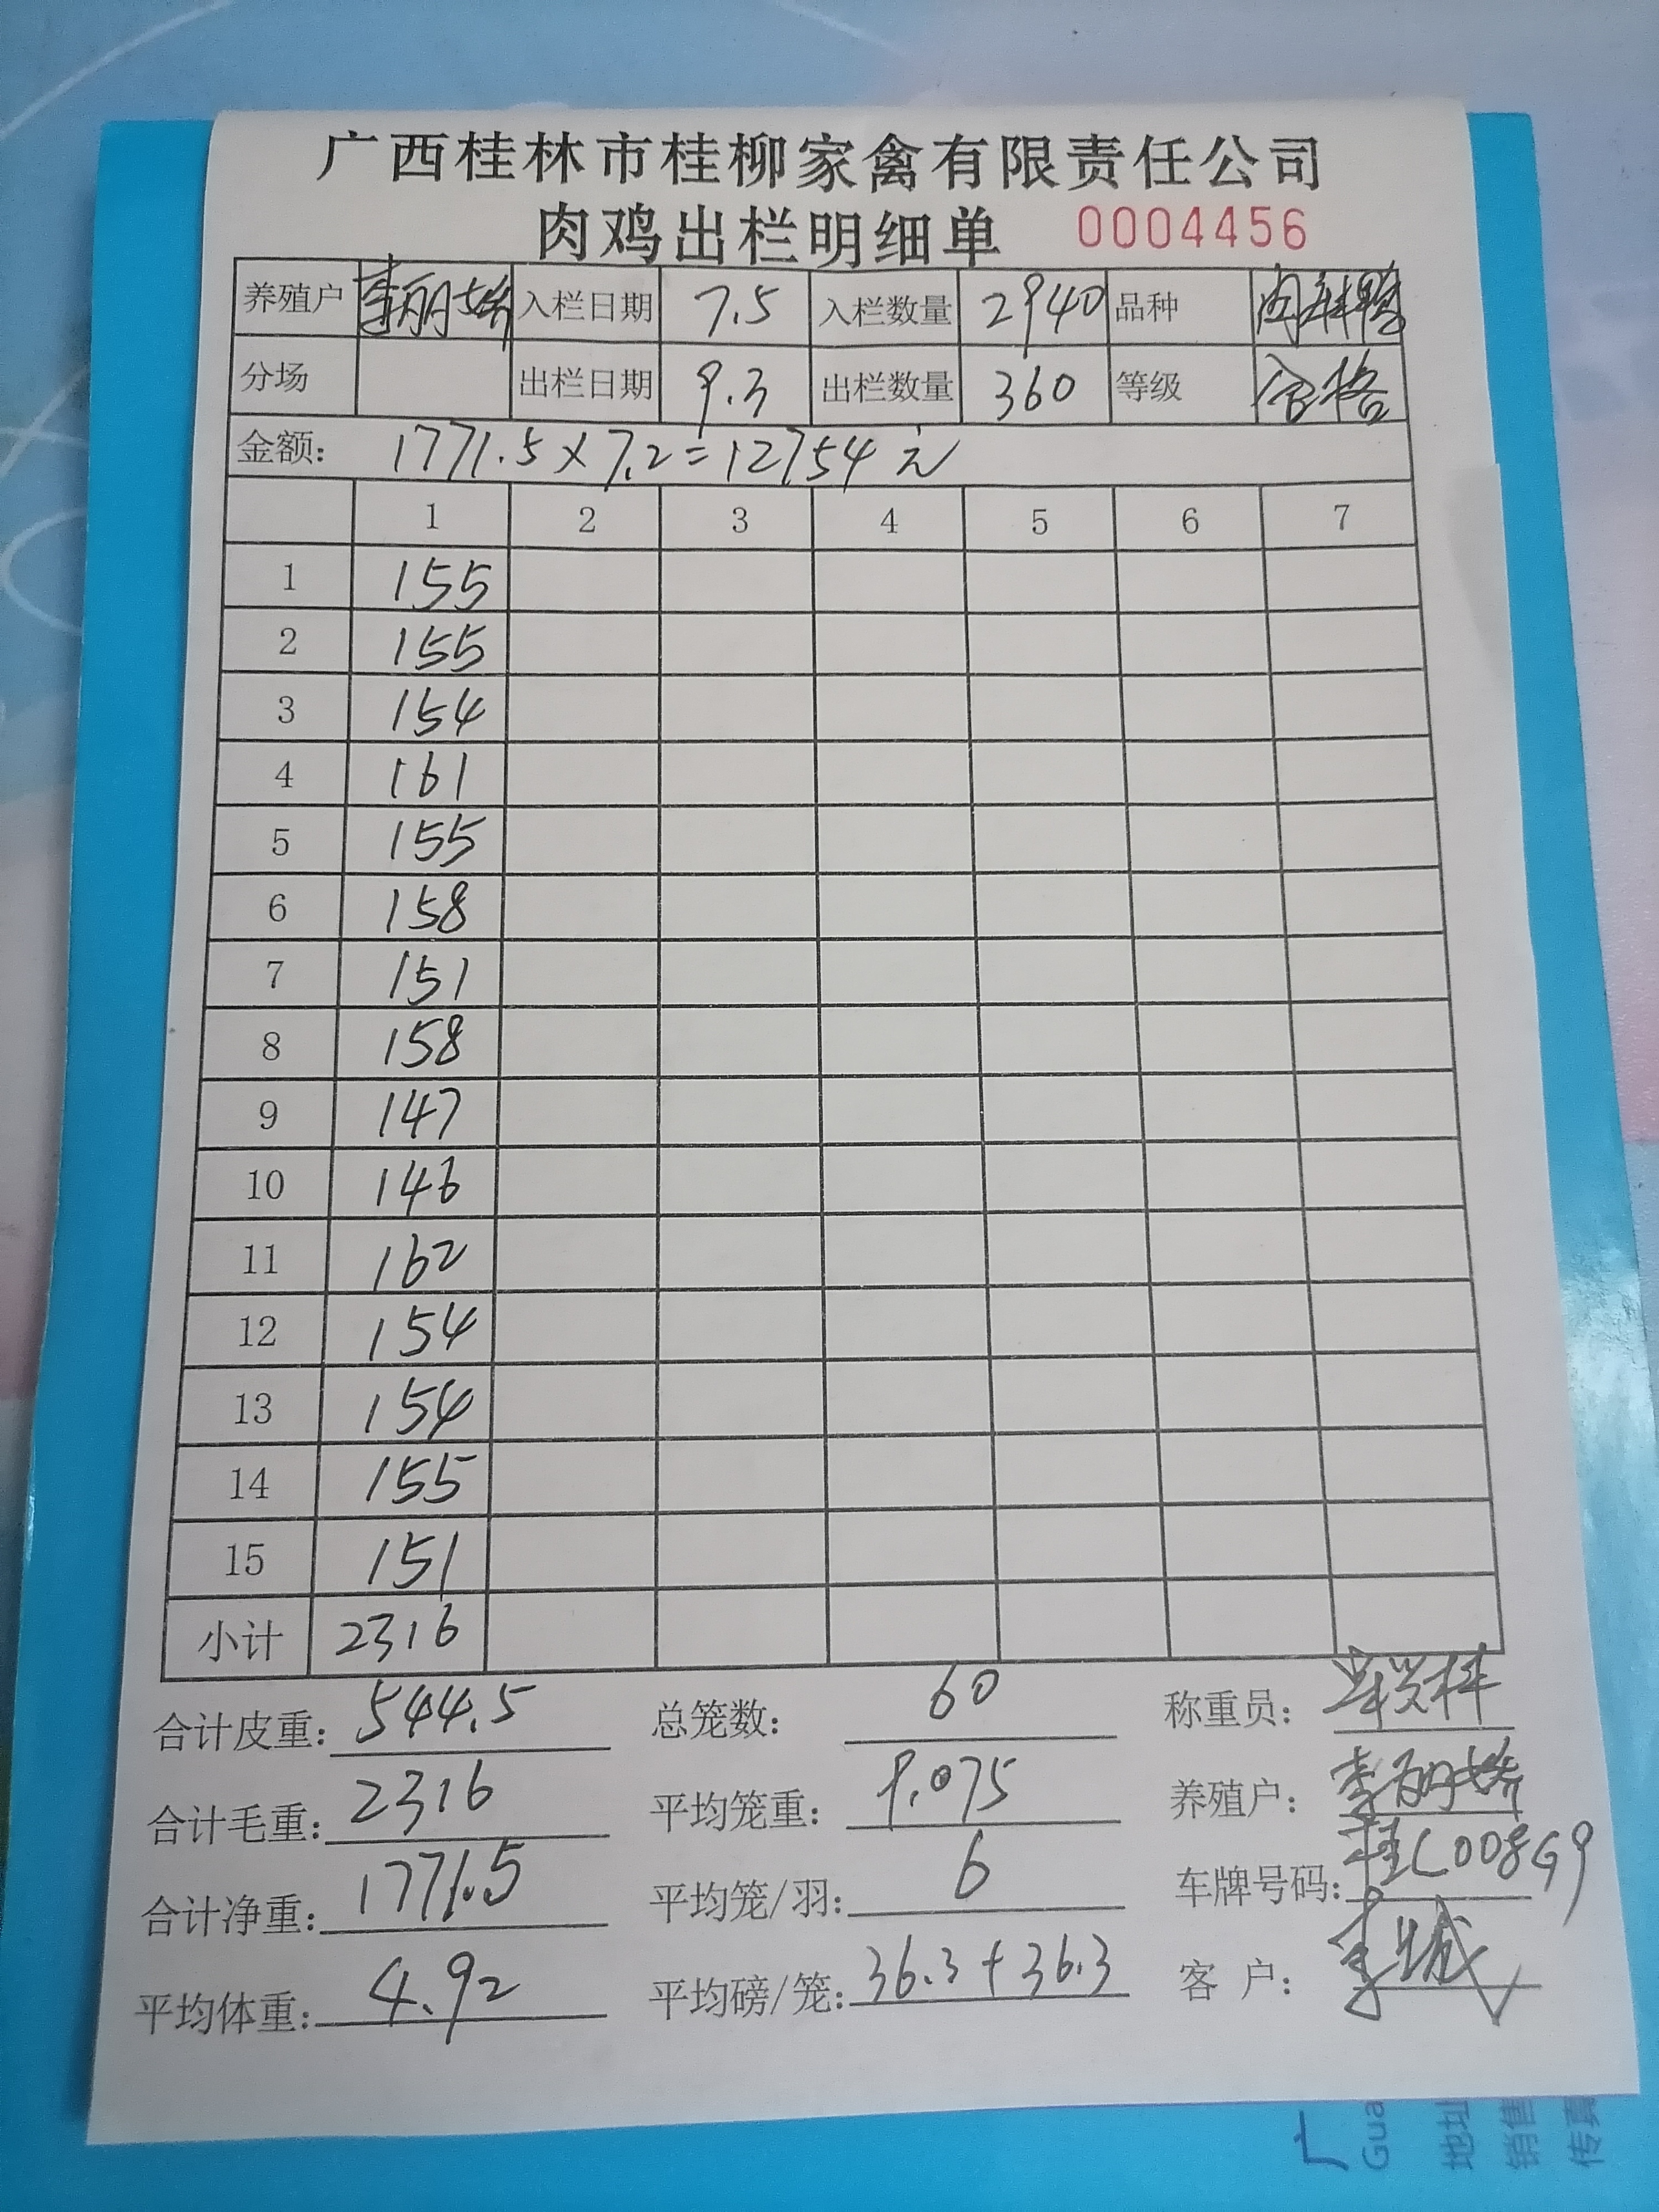 广西桂林市桂柳家禽有限责任公司
肉鸡出栏明细单 0004456
养殖户 李丽娇 入栏日期 7.5 入栏数量 2940 品种
分场 出栏日期 9.3 出栏数量 360 等级 合格
金额: 1771.5×7.2=12754元
1 2 3 4 5 6 7
1 155
2 155
3 154
4 161
5 155
6 158
7 151
8 158
9 147
10 146
11 162
12 154
13 154
14 155
15 151
小计 2316
合计皮重: 544.5 总笼数: 60 称重员:
合计毛重: 2316 平均笼重: 9.075 养殖户: 李丽娇
合计净重: 1771.5 平均笼/羽: 6 车牌号码: 桂C008G9
平均体重: 4.92 平均磅/笼: 36.3+36.3 客户:
广
Gua
地址
销售
传真